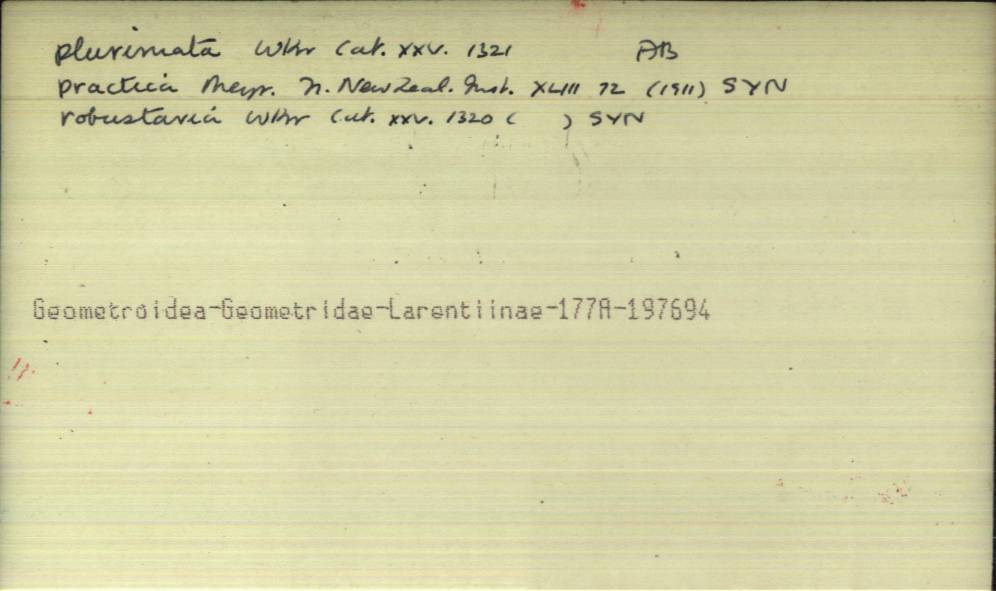 plurimata Wkr Cat. XXV. 1321 AB
practica Meyr. n. New Zeal. Inst. XLIII 72 (1911) SYN
robustaria Wkr Cat. XXV. 1320 ( ) SYN
Geometroidea-Geometridae-Larentiinae-177A-197694